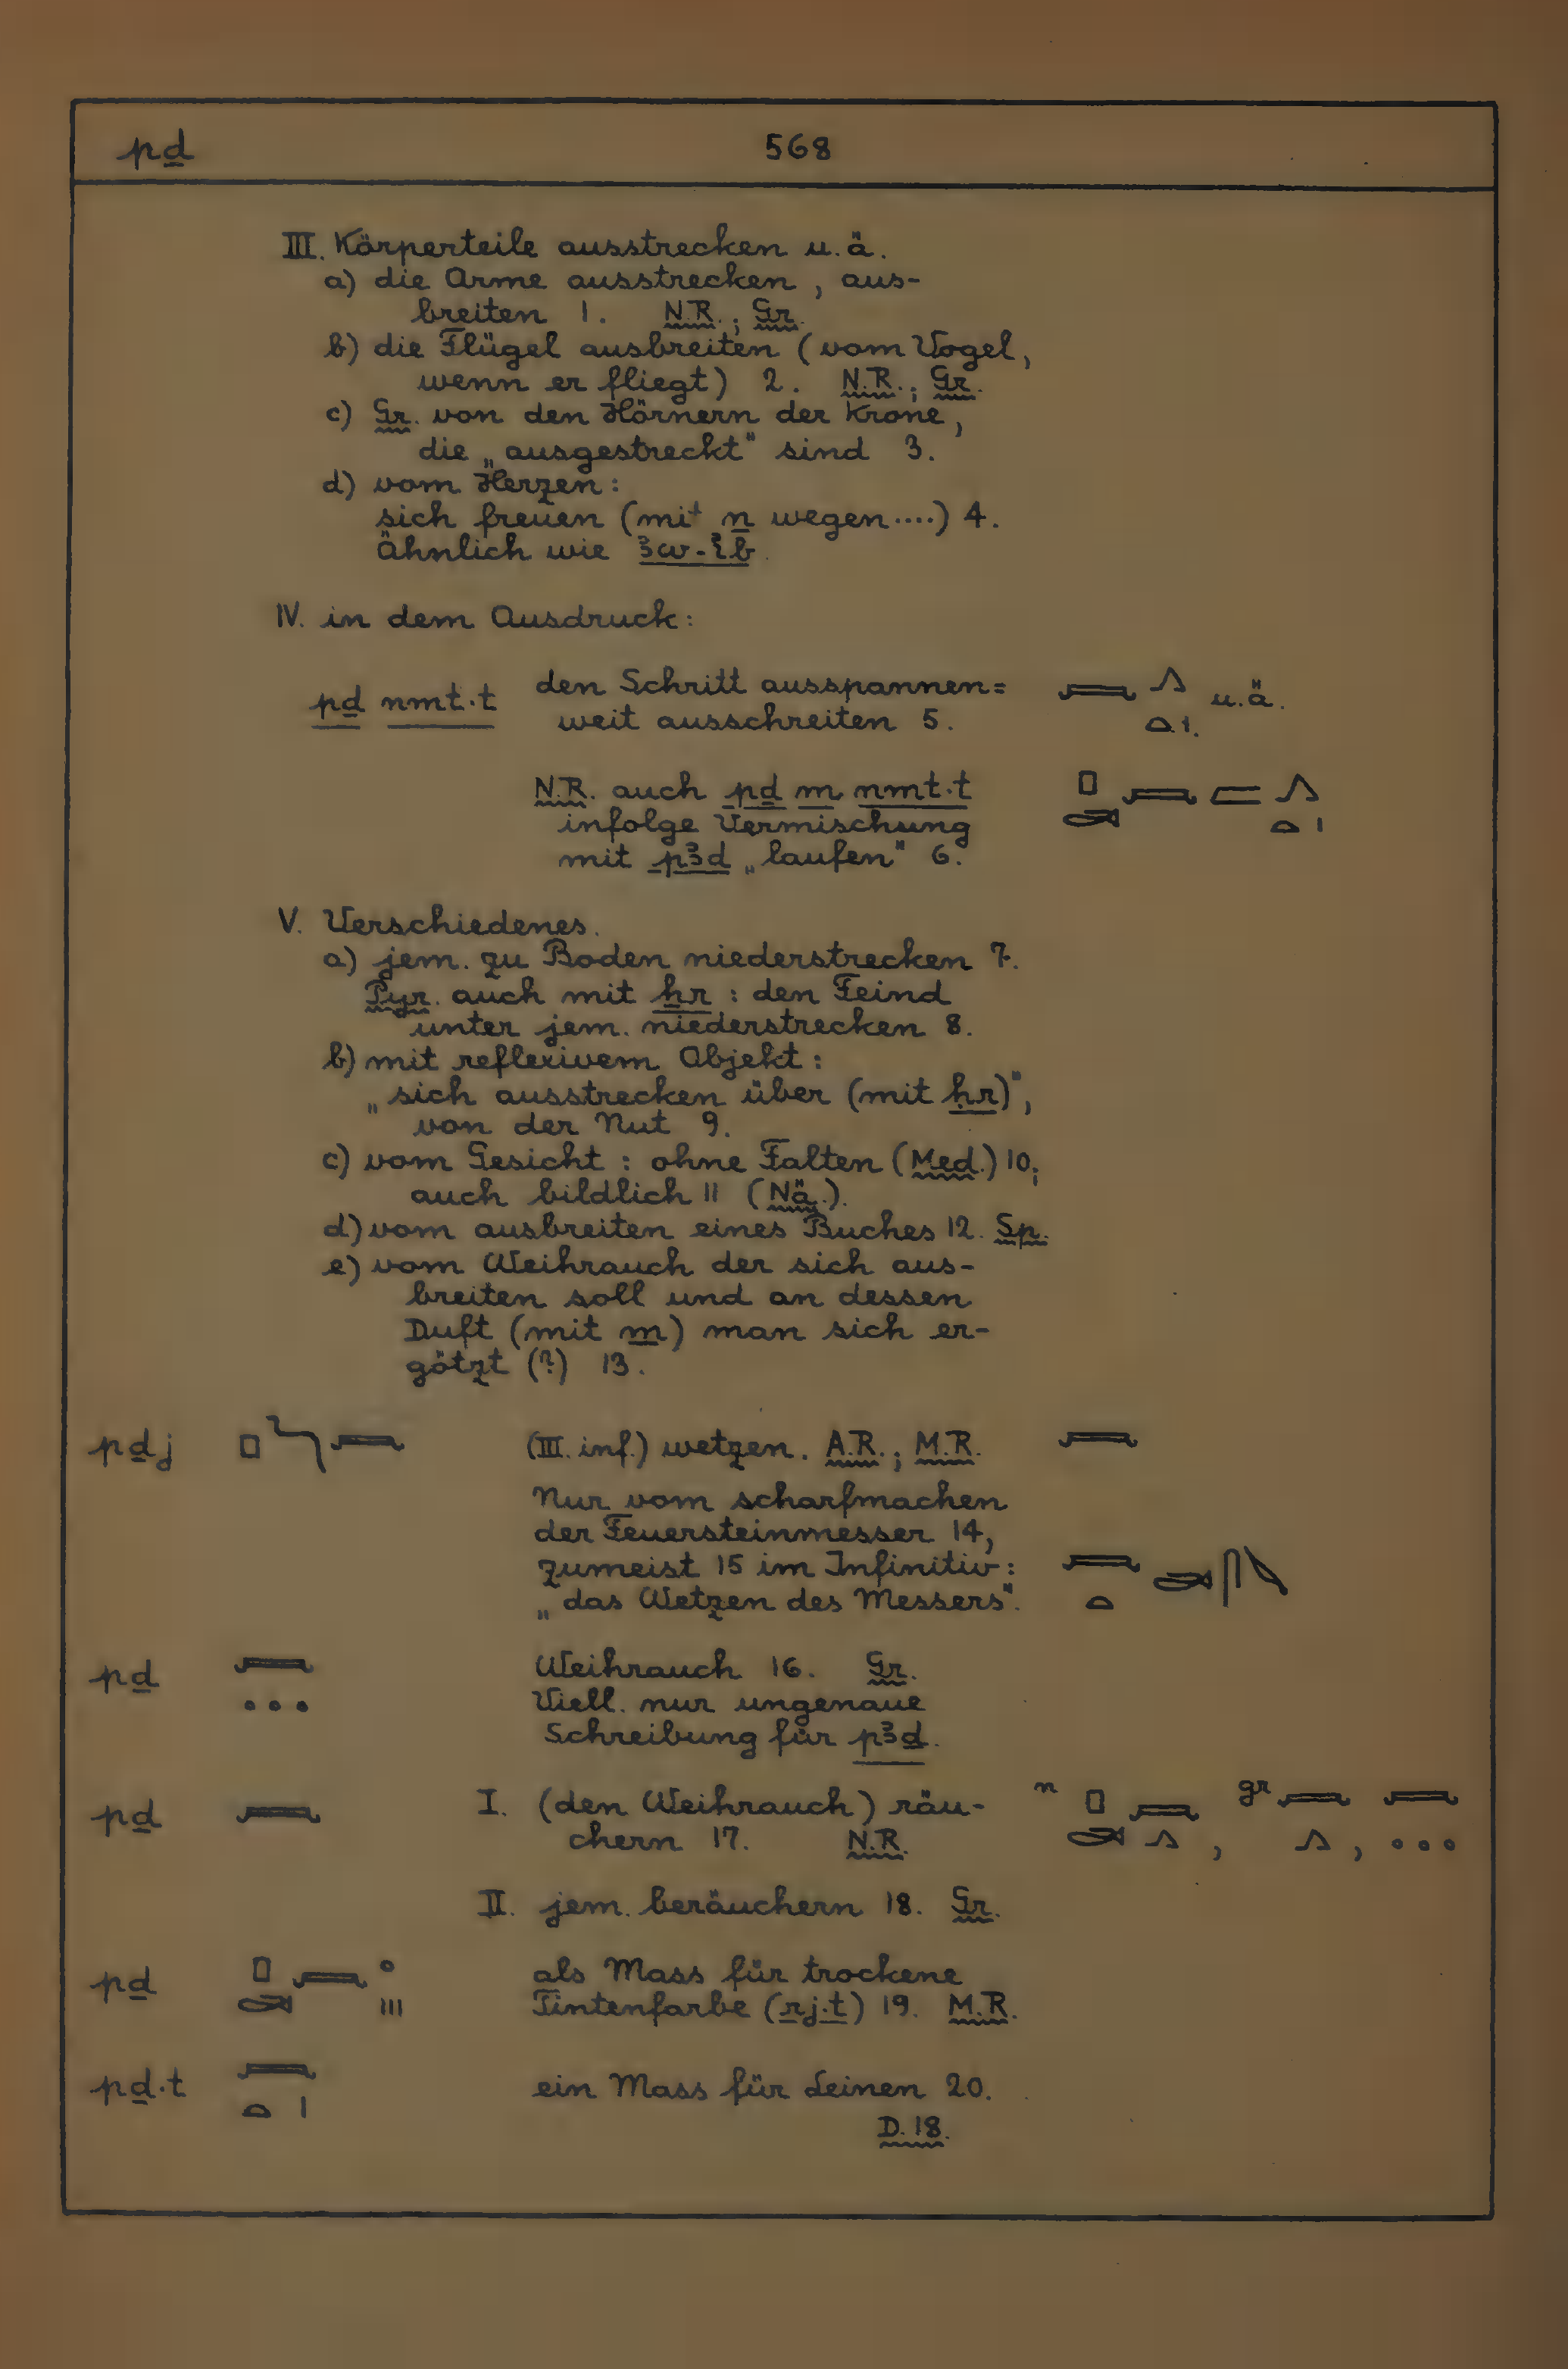 pḏ 568
III. Körperteile ausstrecken u.ä.
a) die Arme ausstrecken, aus-
breiten 1. N.R.; Gr.
b) die Flügel ausbreiten (vom Vogel,
wenn er fliegt) 2. N.R.; Gr.
c) Gr. von den Hörnern der Krone,
die „ausgestreckt" sind 3.
d) vom Herzen:
sich freuen (mit n wegen....) 4.
ähnlich wie ꜣw-ib.
IV. in dem Ausdruck:
pḏ nmt·t den Schritt ausspannen= u.ä.
weit ausschreiten 5.
N.R. auch pḏ m nmt·t
infolge Vermischung
mit pꜣd „laufen" 6.
V. Verschiedenes.
a) jem. zu Boden niederstrecken 7.
Pyr. auch mit ẖr : den Feind
unter jem. niederstrecken 8.
b) mit reflexivem Objekt:
„sich ausstrecken über (mit ḥr)",
von der Nut 9.
c) vom Gesicht: ohne Falten (Med.) 10;
auch bildlich 11 (Nä.).
d) vom ausbreiten eines Buches 12. Sp.
e) vom Weihrauch der sich aus-
breiten soll und an dessen
Duft (mit m) man sich er-
götzt (?) 13.
pḏj (III. inf.) wetzen. A.R.; M.R.
Nur vom scharfmachen
der Feuersteinmesser 14,
zumeist 15 im Infinitiv:
„das Wetzen des Messers".
pḏ Weihrauch 16. Gr.
Viell. nur ungenaue
Schreibung für pꜣḏ.
pḏ I. (den Weihrauch) räu- n gr
chern 17. N.R.
II. jem. beräuchern 18. Gr.
pḏ als Mass für trockene
Tintenfarbe (rj·t) 19. M.R.
pḏ·t ein Mass für Leinen 20.
D. 18.